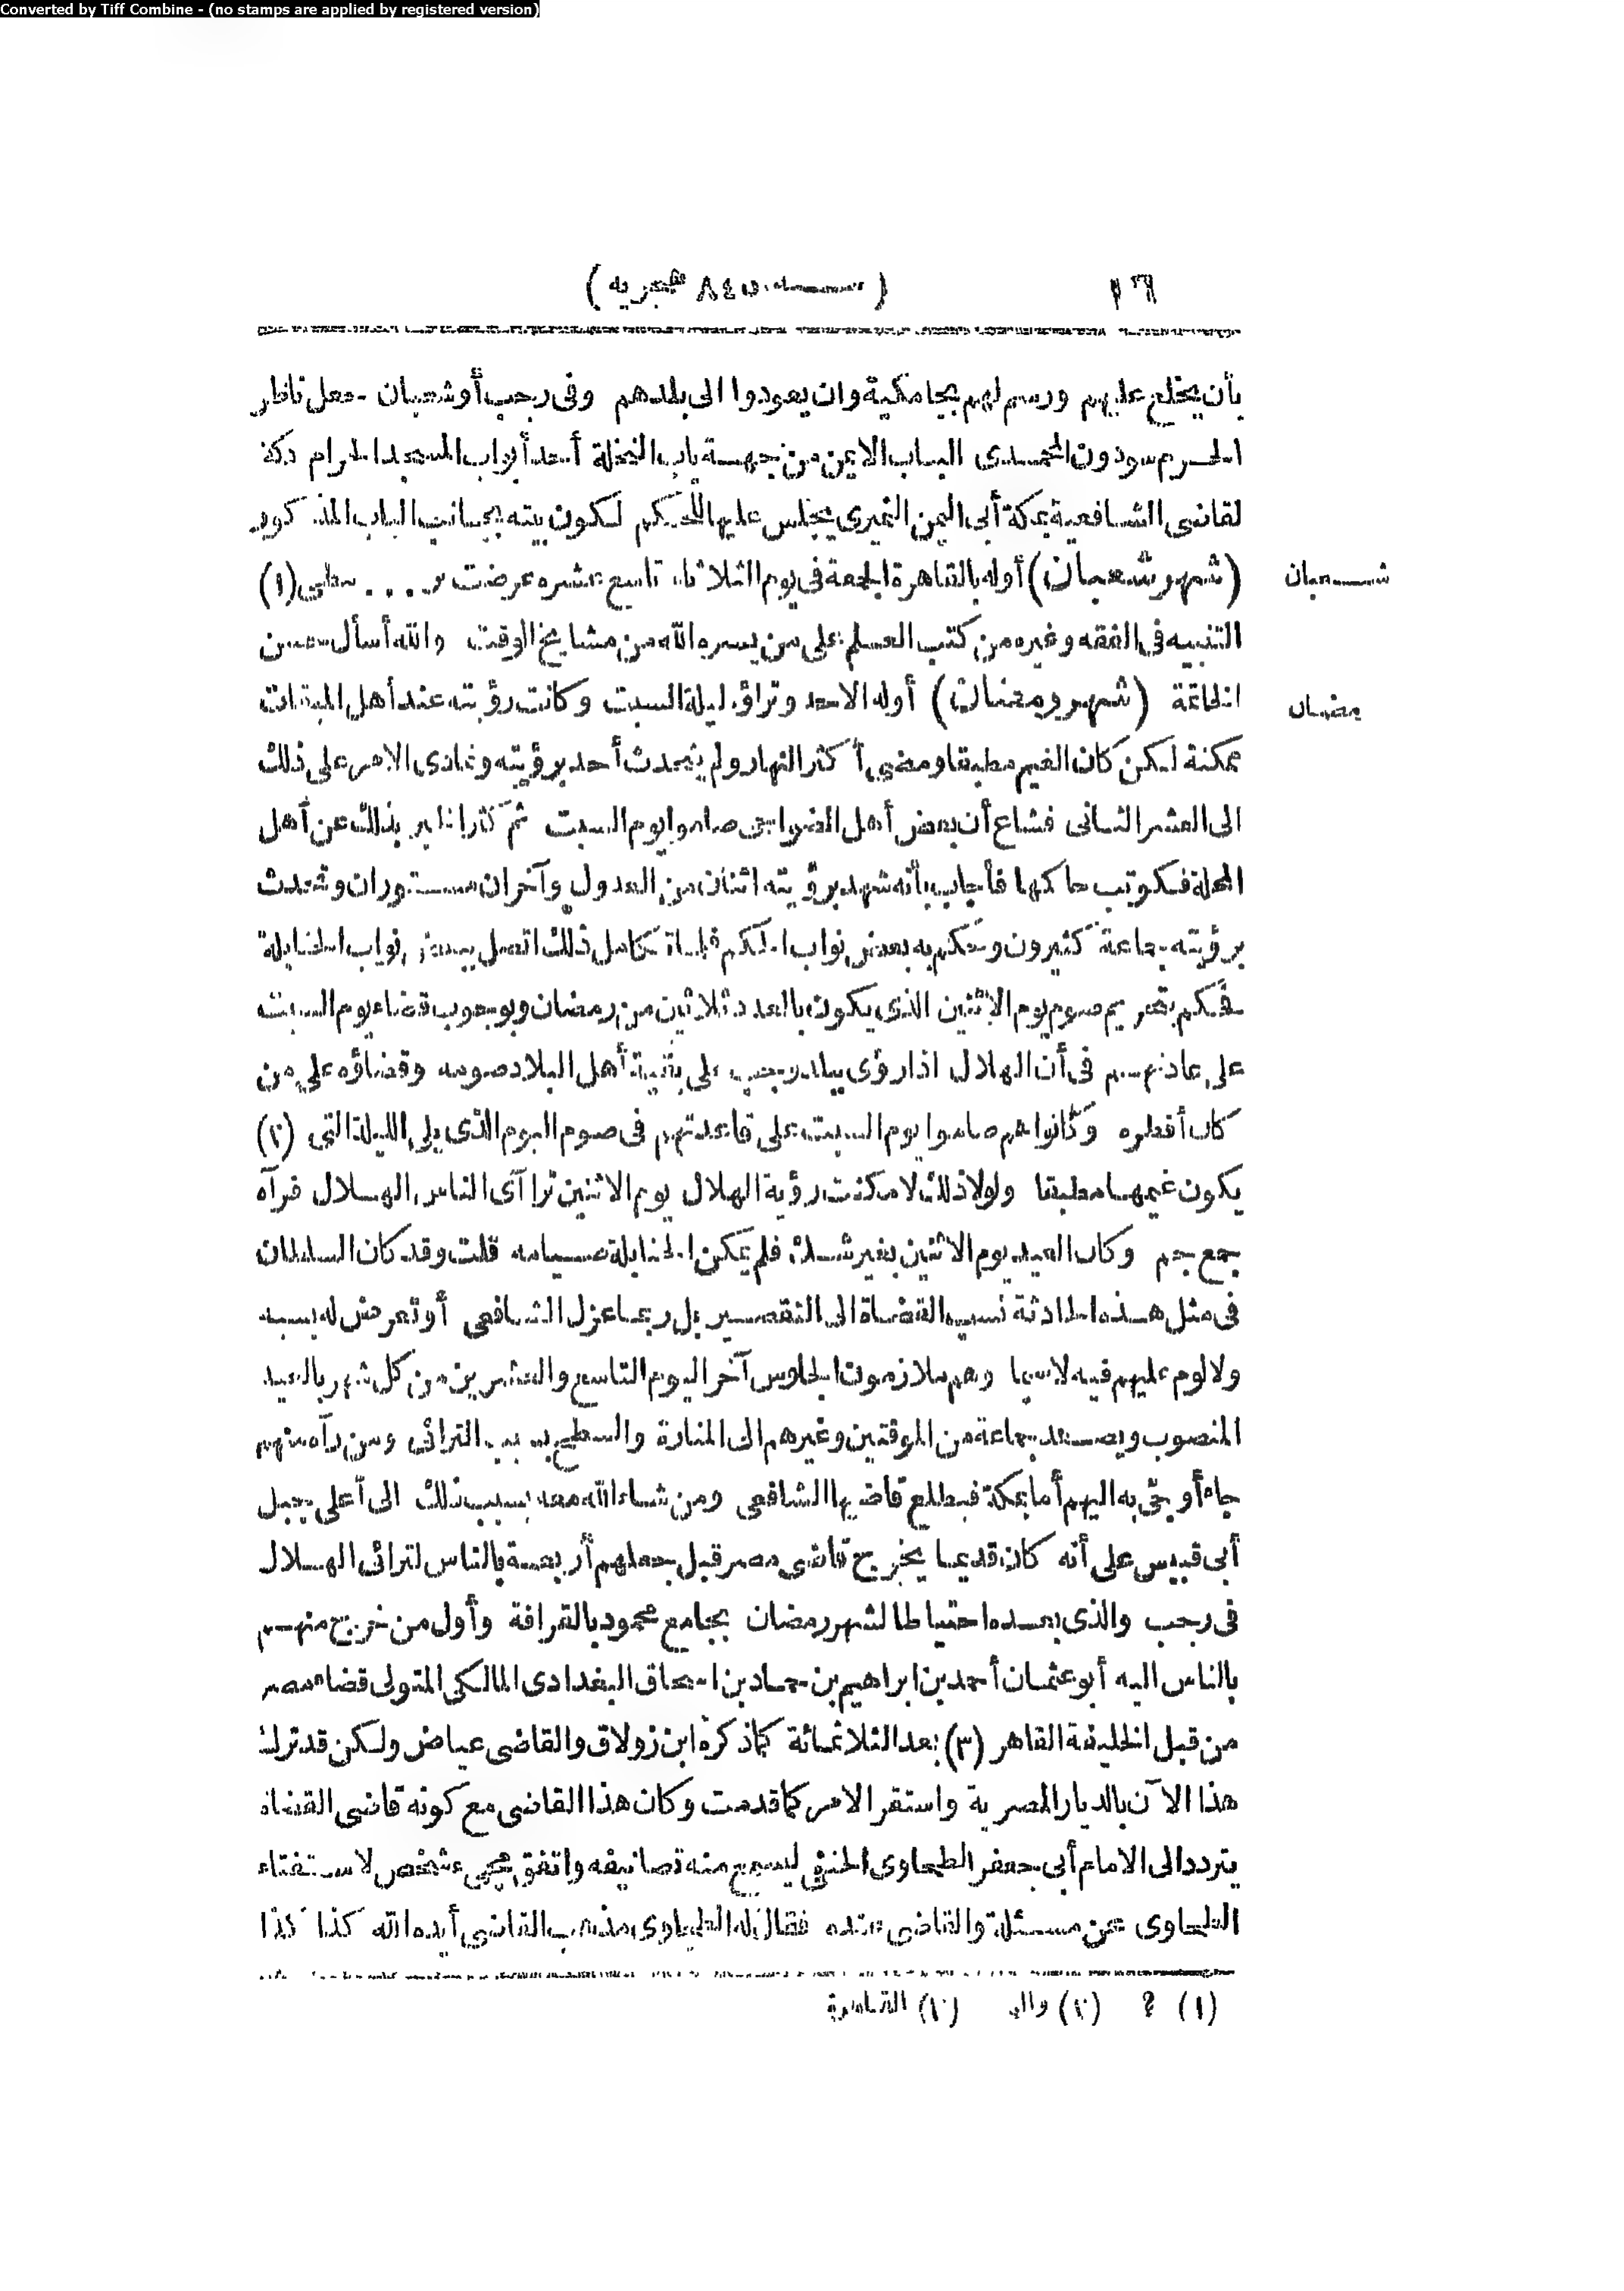 Converted by Tiff Combine - (no stamps are applied by registered version)
١٦ (سـنة ٨٤٥ هجريه)
بأن يخلع عليهم ورسم لهم بجامكية وان يعودوا الى بلدهم وفى رجب أو شعبان جعل ناظر
الحرم سودون المحمدى الباب الايمن من جهة باب العجلة أحد أبواب المسجد الحرام دكة
لقاضى الشافعية بمكة أبى اليمن النويرى يجلس عليها للحكم لكون بيته بجانب الباب المذكور
شعبان
(شهر شعبان) أوله بالقاهرة الجمعة فى يوم الثلاثاء تاسع عشره عرضت .... (١)
التنبيه فى الفقه وغيره من كتب العلم على من يسره الله من مشايخ الوقت والله أسأل حسن
رمضان
الخاتمة (شهر رمضان) أوله الاحد وتراؤه ليلة السبت وكانت رؤيته عند أهل الميقات
ممكنة لكن كان الغيم مطبقا ومضى أكثر النهار ولم يتحدث أحد برؤيته وتمادى الامر على ذلك
الى العشر الثانى فشاع أن بعض أهل الضواحى صاموا يوم السبت ثم كثر الخبر بذلك عن أهل
المحلة فكوتب حاكمها فأجاب بأنه شهد برؤيته اثنان من العدول وآخران مستوران وتحدث
برؤيته جماعة كثيرون وحكم به بعض نواب الحكم فلما تكامل ذلك اتصل ببعض نواب الحنابلة
فحكم بتحريم صوم يوم الاثنين الذى يكون بالعدد ثلاثين من رمضان وبوجوب قضاء يوم السبت
على عادتهم فى أن الهلال اذا رؤى ببلد وجب على بقية أهل البلاد صومه وقضاؤه على من
كان أفطره وكانوا هم صاموا يوم السبت على قاعدتهم فى صوم اليوم الذى يلى الليلة التى (٢)
يكون غيمها مطبقا ولولا ذلك لامكنت رؤية الهلال يوم الاثنين تراآى الناس الهلال فرآه
جمع جم وكان العيد يوم الاثنين بغير شك فلم يمكن الحنابلة صيامه قلت وقد كان السلطان
فى مثل هذه الحادثة نسب القضاة الى التقصير بل ربما عزل الشافعى أو تعرض له بسببه
ولا لوم عليهم فيه لاسيما وهم ملازمون الجلوس آخر اليوم التاسع والعشرين من كل شهر بالعيد
المنصوب ويصعد جماعة من الموقتين وغيرهم الى المنارة والسطح بسبب الترائى ومن رآه منهم
جاء أو جىء به اليهم أما بمكة فيطلع قاضيها الشافعى ومن شاء الله معه بسبب ذلك الى أعلى جبل
أبى قبيس على أنه كان قديما يخرج قاضى مصر قبل جعلهم أربعة بالناس لترائى الهلال
فى رجب والذى بعده احتياطا لشهر رمضان بجامع محمود بالقرافة وأول من خرج منهم
بالناس اليه أبو عثمان أحمد بن ابراهيم بن حماد بن اسحاق البغدادى المالكى المتولى قضاء مصر
من قبل الخليفة القاهر (٣) بعد الثلاثمائة كما ذكره ابن زولاق والقاضى عياض ولكن قد ترك
هذا الآن بالديار المصرية واستقر الامر كما قدمت وكان هذا القاضى مع كونه قاضى القضاة
يتردد الى الامام أبى جعفر الطحاوى الحنفى ليسمع منه تصانيفه واتفق مجىء شخص لاستفتاء
الطحاوى عن مسئلة والقاضى عنده فقال له الطحاوى مذهب القاضى أيده الله كذا كذا
(١) ? (٢) (٣) القاهرة